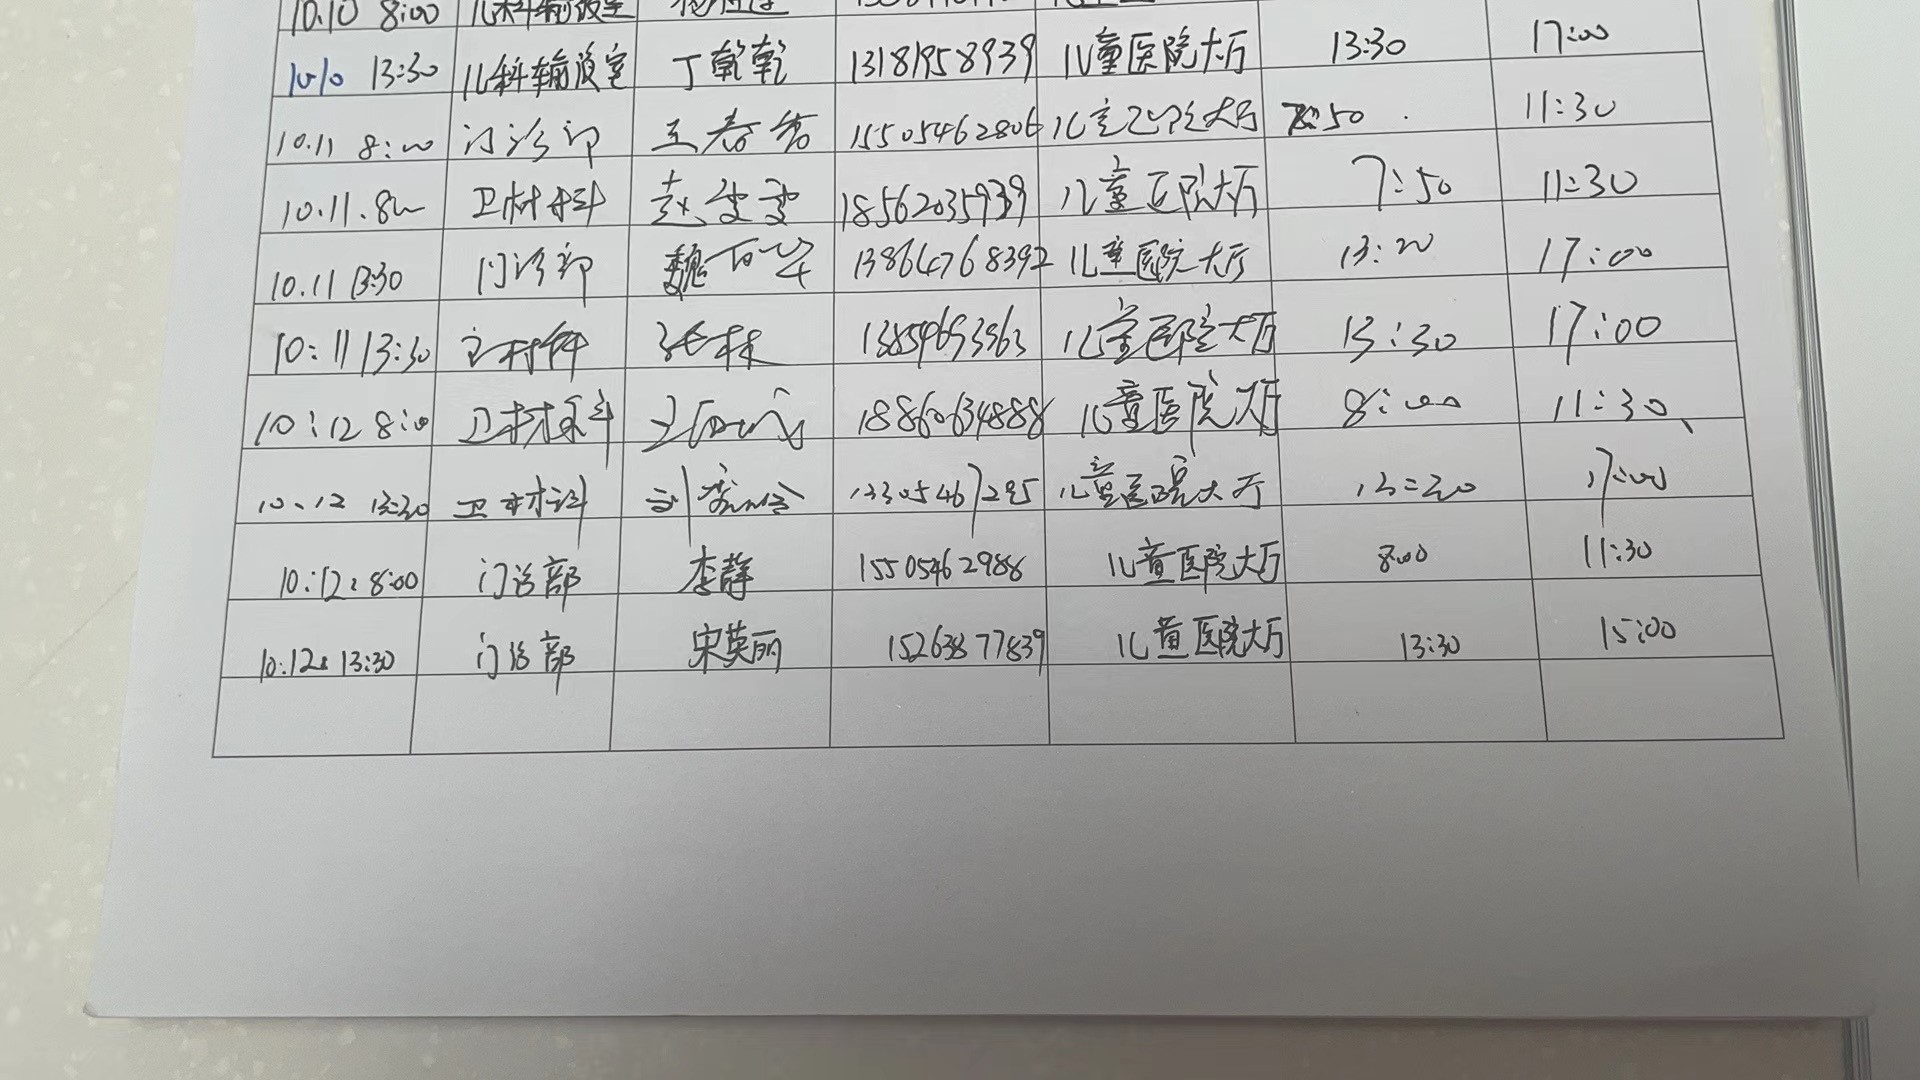 10.10 8:00 儿科输液室
10.10 13:30 儿科输液室 丁乾乾 13181958939 儿童医院大厅 13:30 17:00
10.11 8:00 门诊部 王春 15505462806 儿童医院大厅 7:50 11:30
10.11.8:00 卫材科 赵雯雯 18562035939 儿童医院大厅 7:50 11:30
10.11 13:30 门诊部 魏 13864768392 儿童医院大厅 13:20 17:00
10:11 13:30 卫材科 张林 13854693563 儿童医院大厅 13:30 17:00
10:12 8:00 卫材科 18860634888 儿童医院大厅 8:00 11:30
10.12 13:30 卫材科 刘 13305467295 儿童医院大厅 13:20 17:00
10:12:8:00 门诊部 李静 15505462988 儿童医院大厅 8:00 11:30
10:12: 13:30 门诊部 宋英丽 15263877839 儿童医院大厅 13:30 15:00